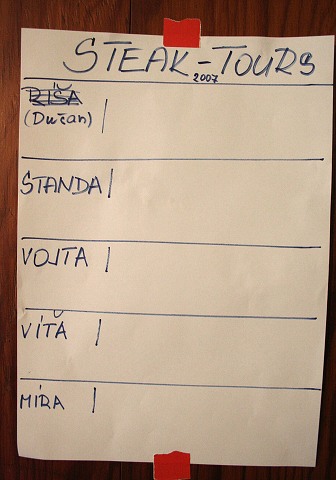 STEAK-TOURS
2007
RÍŠA
(Dušan)
STANDA
VOJTA
VÍŤA
MÍRA